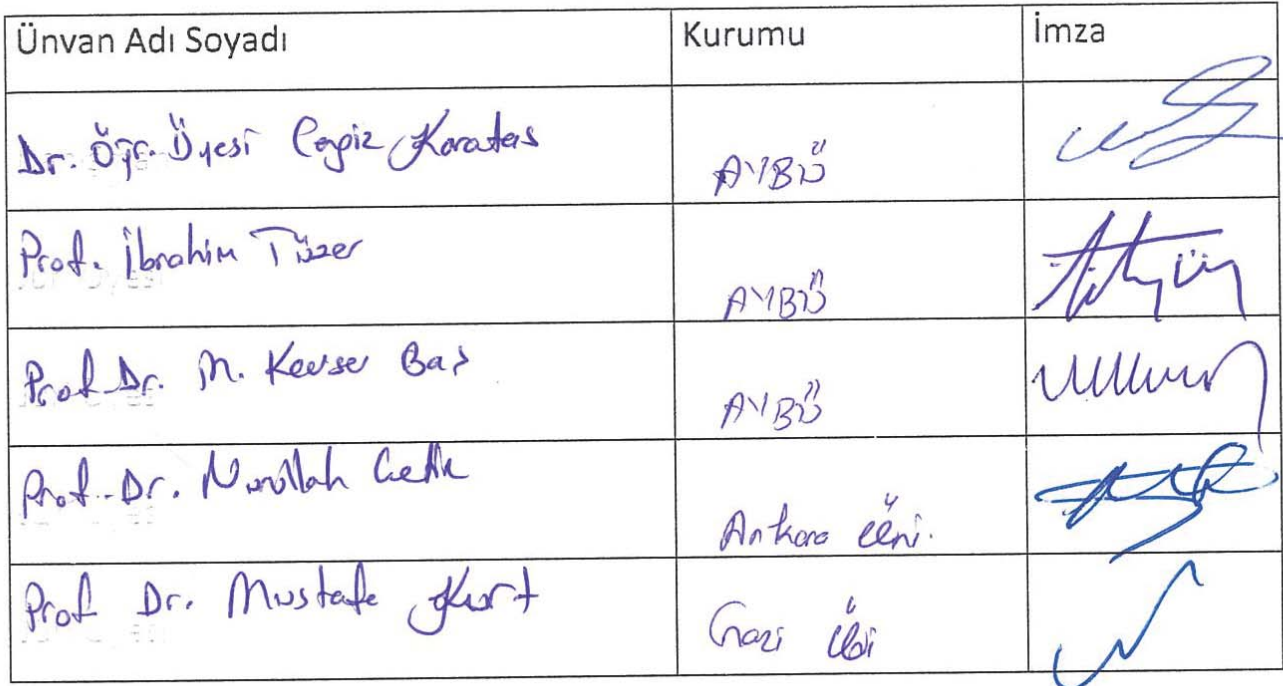 Ünvan Adı Soyadı Kurumu İmza
Dr. Öğr. Üyesi Cengiz Karataş AYBÜ
Prof. İbrahim Tüzer AYBÜ
Prof. Dr. M. Kevser Baş AYBÜ
Prof. Dr. Nurullah Çetin Ankara Üni.
Prof Dr. Mustafa Kurt Gazi Üni